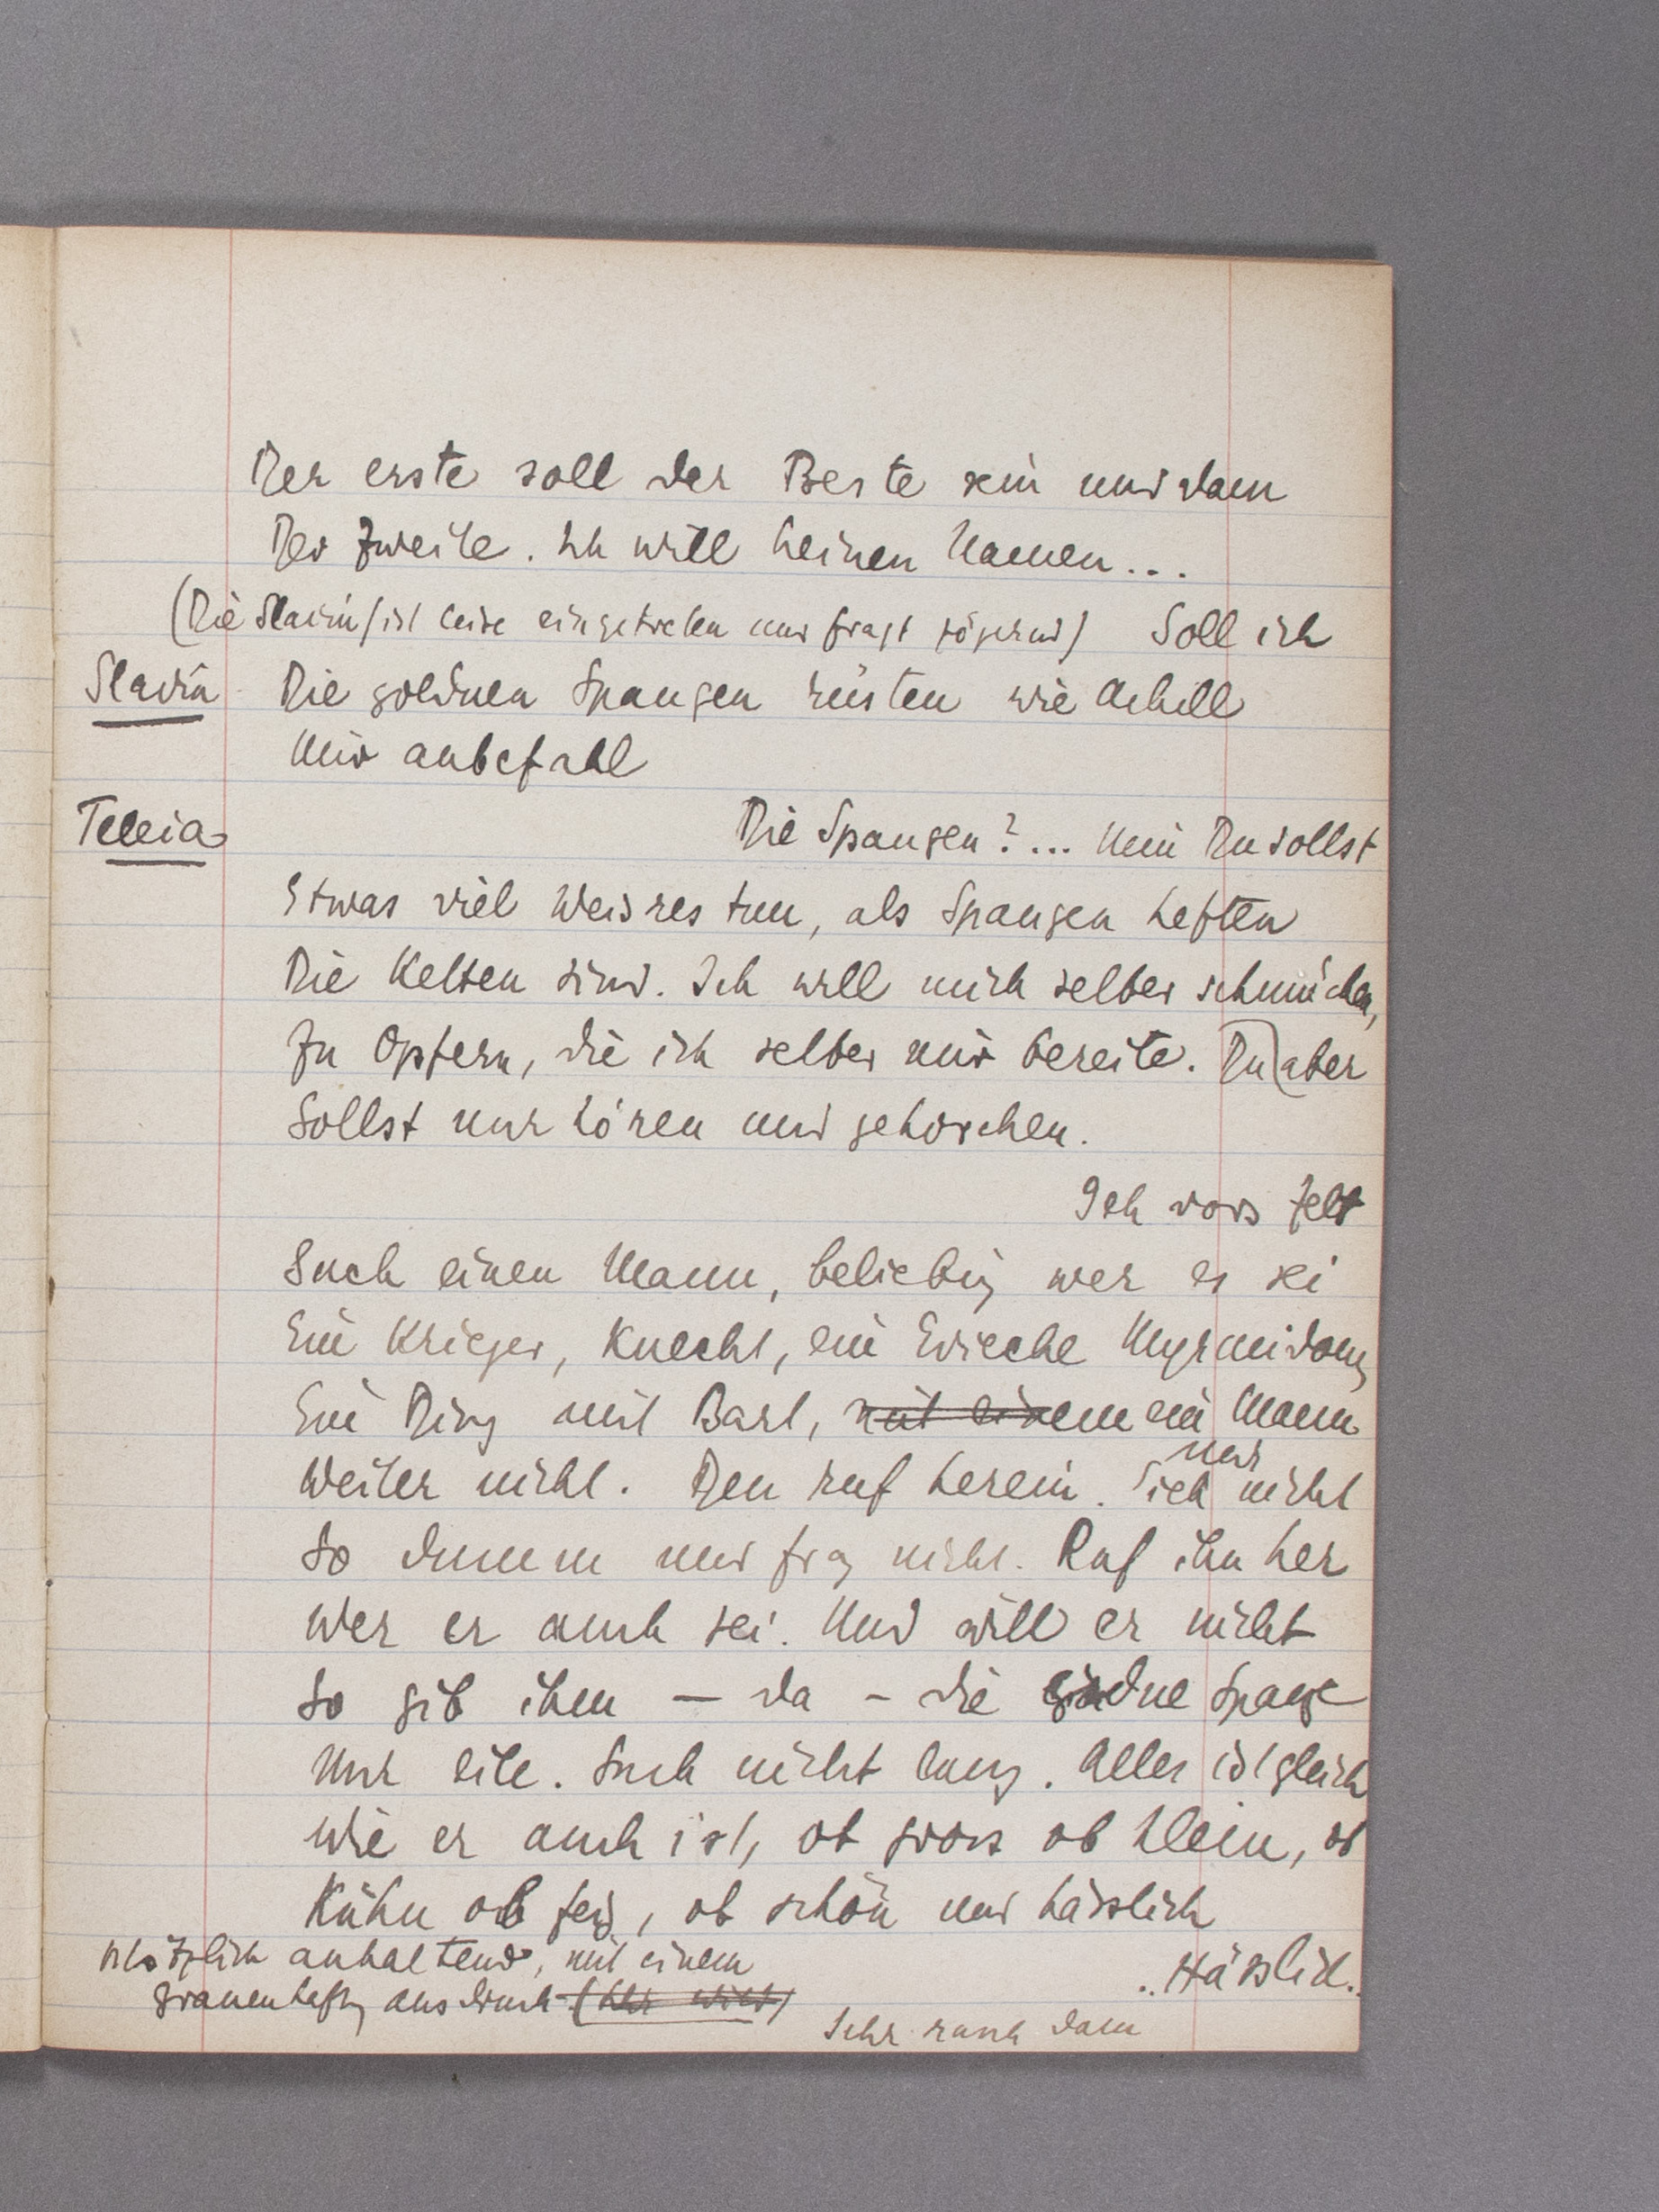 Der erste soll der Beste sein und dann
Der Zweite. Ich will keinen Namen...
(Die Slavin (ist leise eingetreten und fragt zögernd) Soll ich
Slavin Die goldnen Spangen rüsten wie Achill
Mir anbefahl
Teleia Die Spangen?... Nein Du sollst
Etwas viel Weisres tun, als Spangen heften
Die Ketten sind. Ich will mich selber schmücken,
Zu Opfern, die ich selber mir bereite. Du aber
Sollst nur hören und gehorchen.
Geh vors Zelt
Such einen Mann, beliebig wer es sei
Ein Krieger, Knecht, ein Grieche Myrmidone
Ein Ding mit Bart, mit einem ein Mann
Weiter nicht. Den ruf herein. Sieh nur nicht
So dumm und frag nicht. Ruf ihn her
Wer er auch sei. Und will er nicht
So gib ihm — da – die goldne Spange
Nur eile. Such nicht lang. Alles ist gleich
Wie er auch ist, ob gross ob klein, ob
Kühn ob feig, ob schön und hässlich
plötzlich anhaltend, mit einem
..Hässlich..
grauenhaften Ausdruck
Sehr rasch dann